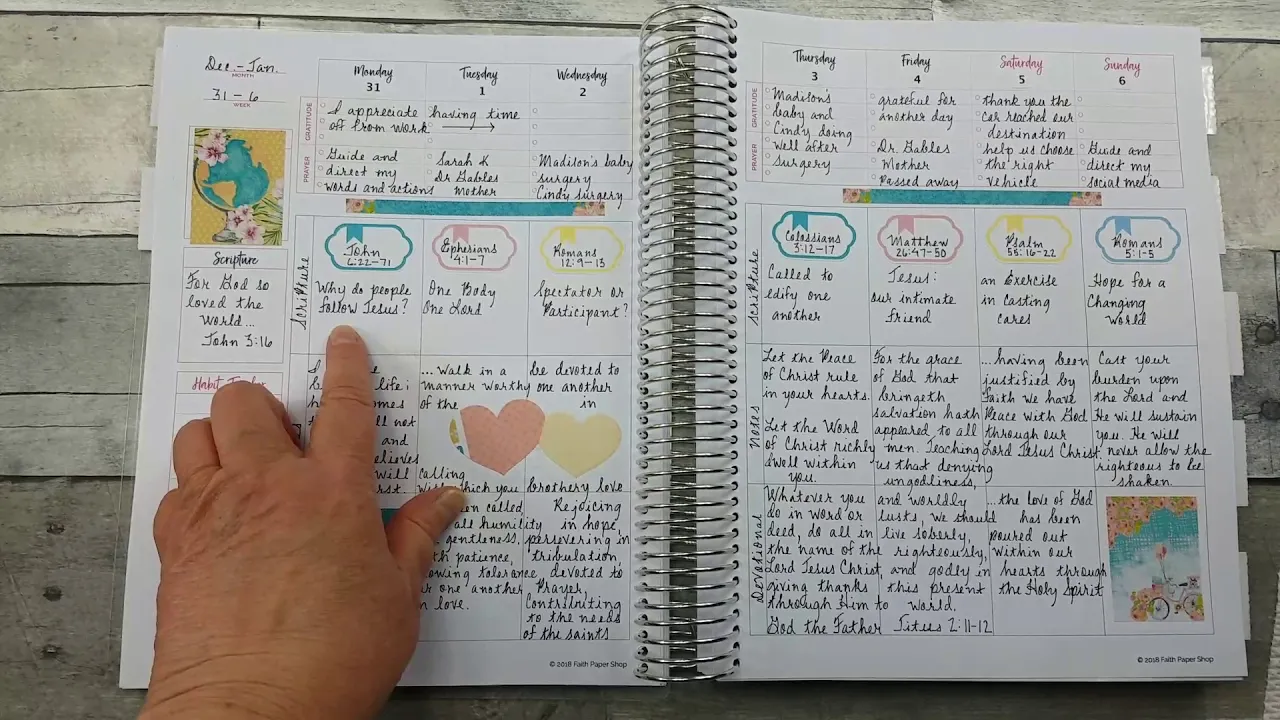 Dec.- Jan.
MONTH
31 - 6
WEEK
Monday
31
Tuesday
1
Wednesday
2
GRATITUDE
I appreciate having time
off from work
PRAYER
Guide and
direct my
words and actions
Sarah K
Dr Gables
Mother
Madison's baby
surgery
Cindy surgery
Scripture
For God so
loved the
World...
John 3:16
Habit
Scripture
John
6:22-71
Why do people
follow Jesus?
Ephesians
4:1-7
One Body
One Lord
Romans
12:9-13
Spectator or
Participant?
life;
not
and
will
... walk in a
manner worthy
of the
calling
which you
called,
all humility
gentleness,
patience,
tolerance
one another
love.
be devoted to
one another
in
brotherly love
Rejoicing
in hope,
persevering in
tribulation,
devoted to
Prayer,
Contributing
to the needs
of the saints
© 2018 Faith Paper Shop
Thursday
3
Friday
4
Saturday
5
Sunday
6
GRATITUDE
PRAYER
Madison's
baby and
Cindy doing
well after
surgery
grateful for
another day
Dr. Gables
Mother
Passed away
thank you the
car reached our
destination
help us choose
the right
vehicle
Guide and
direct my
social media
Scripture
Colossians
3:12-17
Called to
edify one
another
Matthew
26:47-50
Jesus:
our intimate
friend
Psalm
55:16-22
an Exercise
in Casting
Cares
Romans
5:1-5
Hope for a
Changing
World
Notes
Let the Peace
of Christ rule
in your hearts.
Let the Word
of Christ richly
dwell within
you.
Devotional
Whatever you
do in word or
deed, do all in
the name of the
Lord Jesus Christ,
giving thanks
through Him to
God the Father
For the grace
of God that
bringeth
salvation hath
appeared to all
men. Teaching
us that denying
ungodliness,
and worldly
lusts, we should
live soberly,
righteously,
and godly in
this present
world.
Titus 2:11-12
... having been
justified by
faith we have
Peace with God
through our
Lord Jesus Christ,
...the love of God
has been
poured out
within our
hearts through
the Holy Spirit
Cast your
burden upon
the Lord and
He will sustain
you. He will
never allow the
righteous to be
shaken.
© 2018 Faith Paper Shop